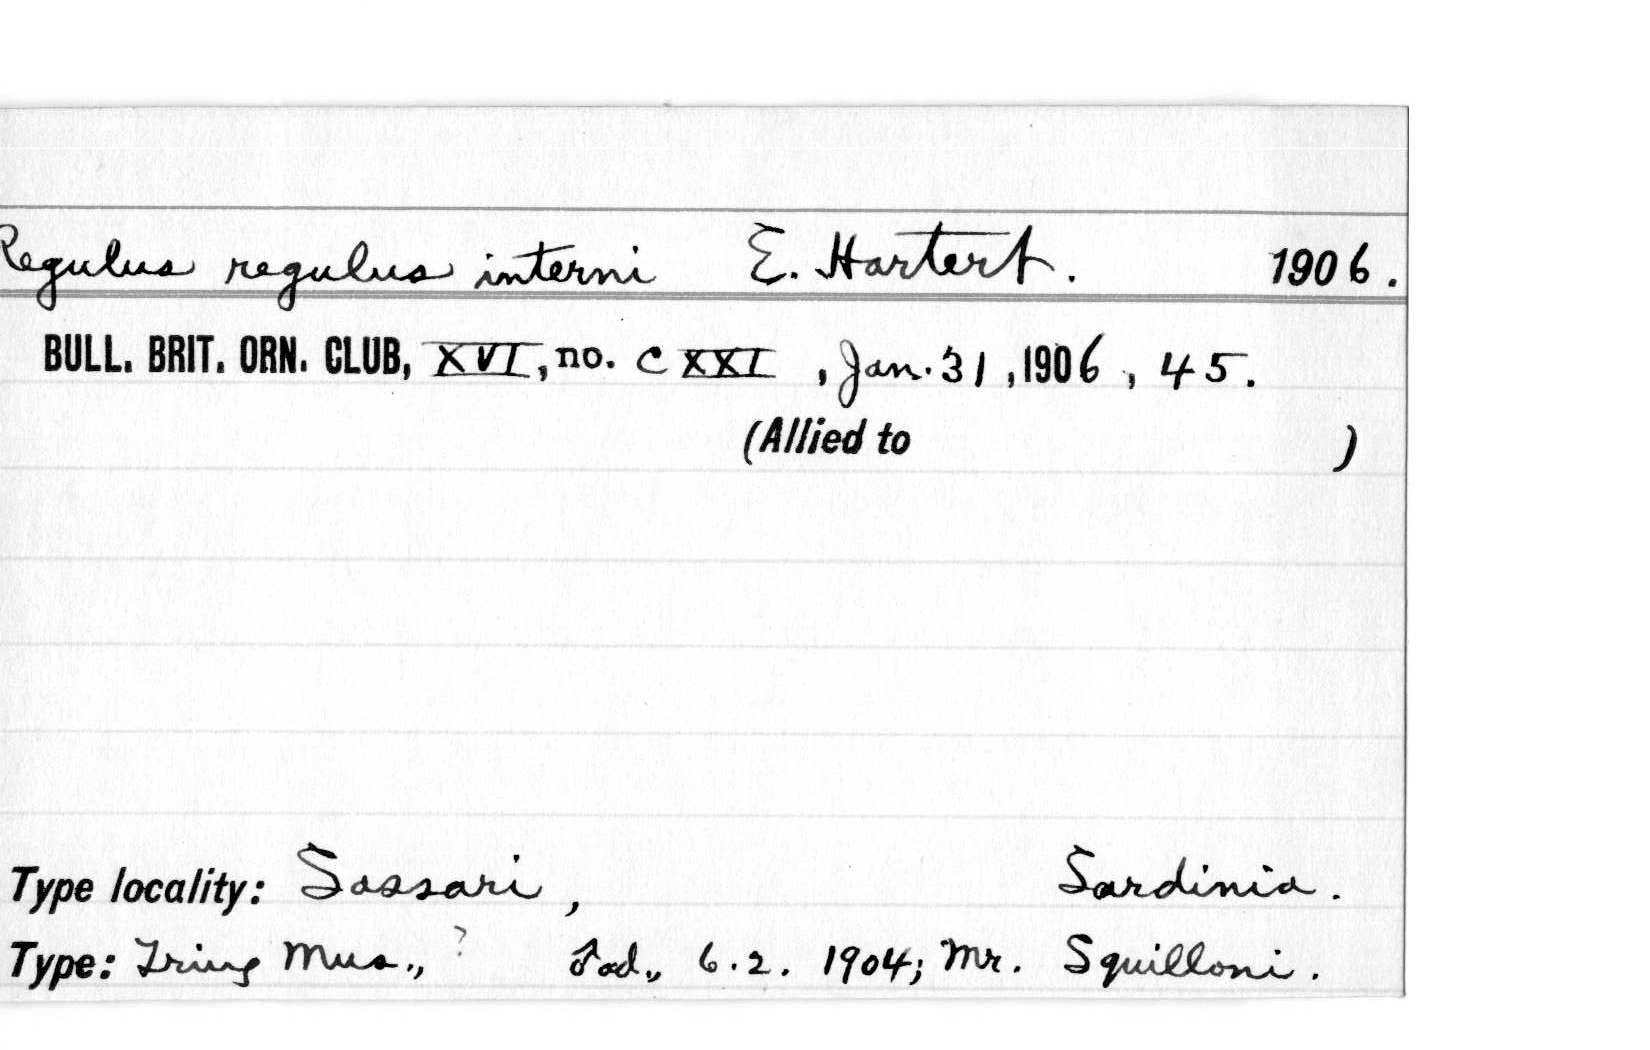 Regulus regulus interni E. Hartert. 1906.
BULL. BRIT. ORN. CLUB, XVI, no. CXXI, Jan. 31, 1906, 45.
(Allied to )
Type locality: Sassari, Sardinia.
Type: Tring Mus., ? ♂ ad., 6.2. 1904; Mr. Squilloni.